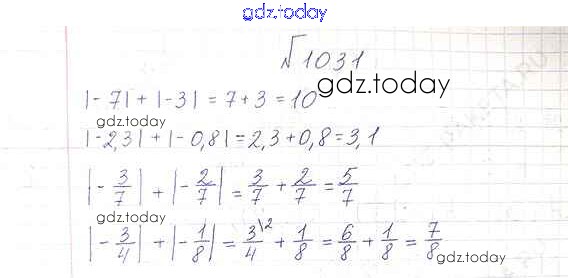 gdz.today
№1031
gdz.today
|-7| + |-3| = 7+3 = 10
gdz.today
|-2,3| + |-0,8| = 2,3 + 0,8 = 3,1
|-3/7| + |-2/7| = 3/7 + 2/7 = 5/7
gdz.today
|-3/4| + |-1/8| = 3\2/4 + 1/8 = 6/8 + 1/8 = 7/8
gdz.today